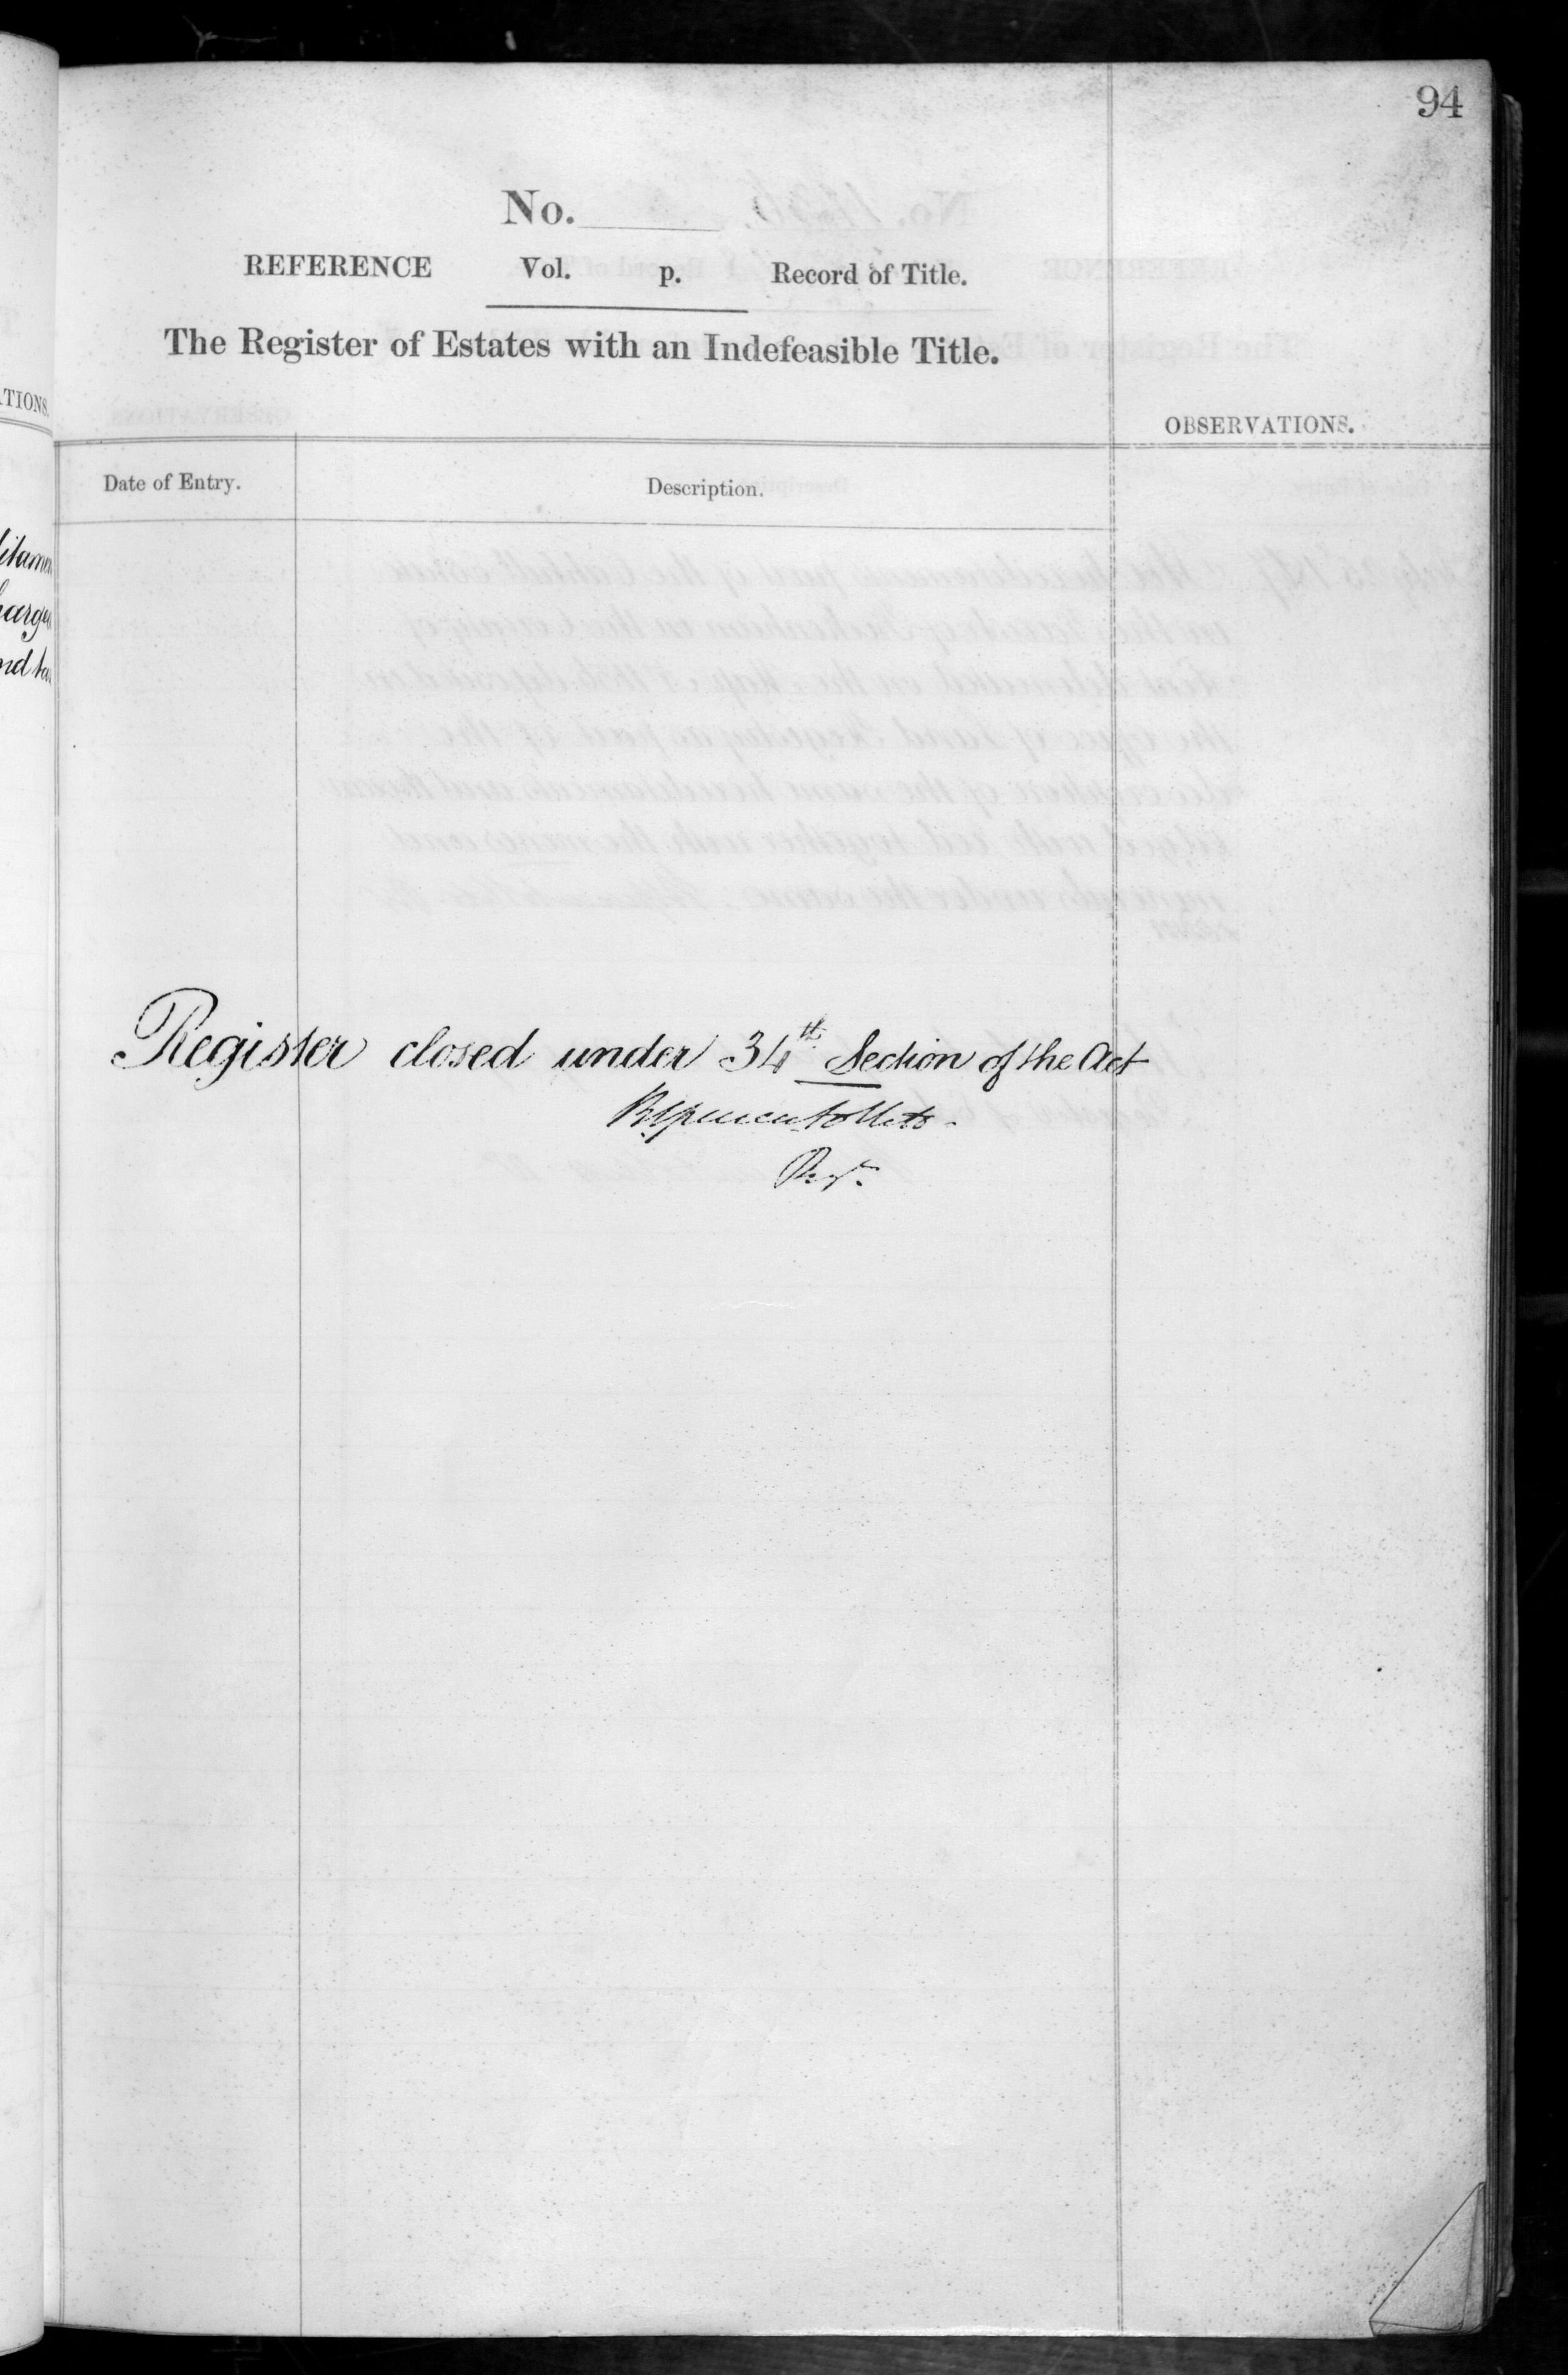 94
No.
REFERENCE Vol. p. Record of Title.
The Register of Estates with an Indefeasible Title.
OBSERVATIONS.
Date of Entry. Description.
Register closed under 34th Section of the Act